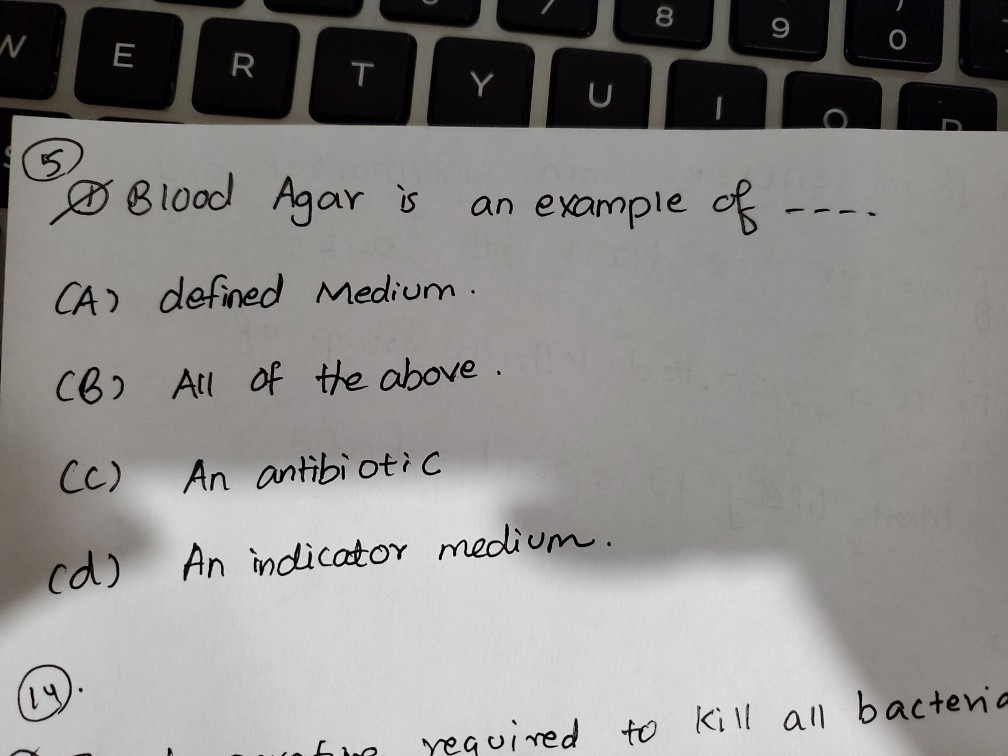 8 9 0
W E R T Y U I O P
5
Blood Agar is an example of ----.
(A) defined Medium.
(B) All of the above.
(C) An antibiotic
(d) An indicator medium.
14.
required to kill all bacteria